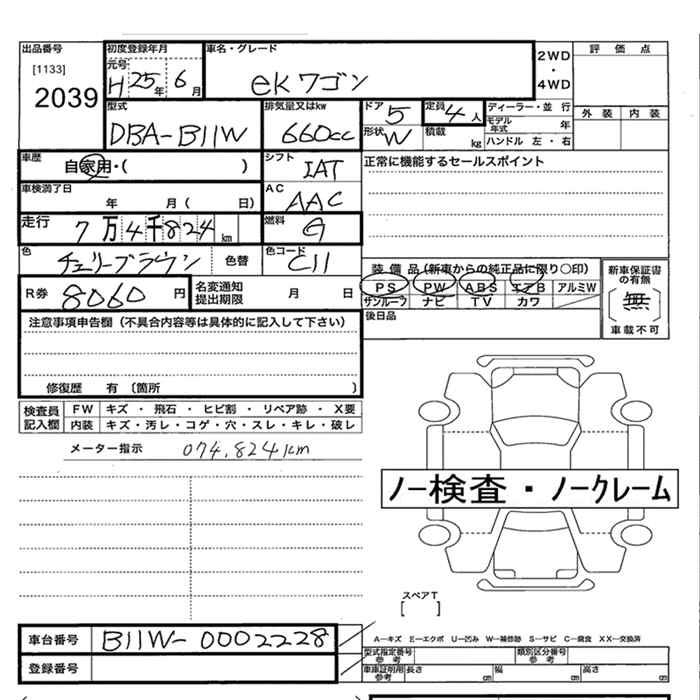 出品番号
[1133]
2039
初度登録年月
元号
H25年6月
車名・グレード
ekワゴン
2WD
・
4WD
評 価 点
外 装 内 装
型式
DBA-B11W
排気量又はkw
660cc
ドア
5
形状
W
定員
4人
積載
kg
ディーラー・並 行
モデル年式 年
ハンドル 左 ・ 右
車歴
自家用・( )
シフト
IAT
正常に機能するセールスポイント
車検満了日
年 月( 日)
AC
AAC
走行
7万4千824km
燃料
G
色
チェリーブラウン
色替
色コード
C11
装 備 品 (新車からの純正品に限り○印)
PS PW ABS エアB アルミW
サンルーフ ナビ TV カワ
新車保証書の有無
〔無〕
車載不可
R券
8060円
名変通知
提出期限
月 日
後日品
注意事項申告欄 (不具合内容等は具体的に記入して下さい)
修復歴 有 〔箇所 〕
検査員
記入欄
FW キズ ・ 飛石 ・ ヒビ割 ・ リペア跡 ・ X要
内装 キズ・汚レ・コゲ・穴・スレ・キレ・破レ
メーター指示
074,824km
ノー検査・ノークレーム
スペアT
[ ]
車台番号
B11W-0002228
登録番号
A—キズ E—エクボ U—凹み W—補修跡 S—サビ C—腐食 XX—交換済
型式指定番号
参 考
類別区分番号
参 考
車車証明用
参考
長さ cm
幅 cm
高さ cm